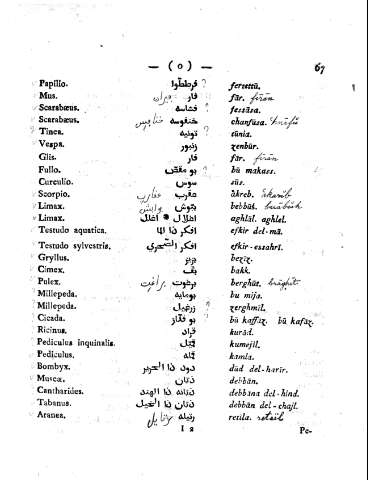 — (٥) — 67
Papilio. فرططوا ? fertettú.
Mus. فار fár. firán
Scarabæus. فساسه ? fessása.
Scarabæus. خنفوسه chanfúsa.
Tinea. تونيه túnia.
Vespa. زنبور zenbúr.
Glis. فار fár. firán
Fullo. بو مقص bú makass.
Curculio. سوس sús.
Scorpio. عقرب عقارب âkreb. âkaréb
Limax. ببوش bebbúš.
Limax. اغلال * اغلل aghlál. aghlel.
Testudo aquatica. افكر ذا الما efkir del-má.
Testudo sylvestris. افكر الصحري efkir-essahri.
Gryllus. بزيز beziz.
Cimex. بق bakk.
Pulex. برغوت براغت berghút.
Millepeda. بوميه bu mija.
Millepeda. زرغميل zerghmíl.
Cicada. بو قفاز bú kaffáz. bú kafáz.
Ricinus. قراد kurád.
Pediculus inquinalis. قميل kumejil.
Pediculus. قمله kamla.
Bombyx. دود ذا الحرير dúd del-harír.
Muscæ. ذبان debbán.
Cantharides. ذبانه ذا الهند debbána del-hind.
Tabanus. ذبان ذا الخيل debbán del-chajl.
Aranea. رتيله retíla.
I 2 Pe-